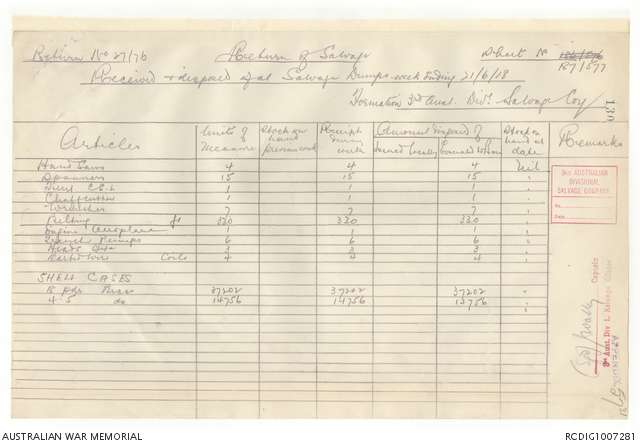 Return No 27/76 Return of Salvage Sheet No
Received & disposed of at Salvage Dumps week ending 21/6/18 187/577
Formation 3rd Aust. Divl. Salvage Coy
130
Articles Units of Measure Stock on hand previous week Receipts during week Amount disposed of Issued locally Stock on hand at date Remarks
Hand Saws 4 4 4 Nil
Spanners 15 15 15 "
1 1 1 "
Chaffcutter 1 1 1 "
7 7 7 "
Belting ft 330 330 330 "
Engine Aeroplane 1 1 1 "
Pumps 6 6 6 "
3 3 3 "
Barbed Wire Coils 4 4 4 "
SHELL CASES
18 pdr Brass 37202 37202 37202 "
4.5 do 14756 14756 14756 "
3RD AUSTRALIAN
DIVISIONAL
SALVAGE COMPANY.
No.
Date
Captain
3rd Aust. Div l. Salvage Officer
AUSTRALIAN WAR MEMORIAL RCDIG1007281